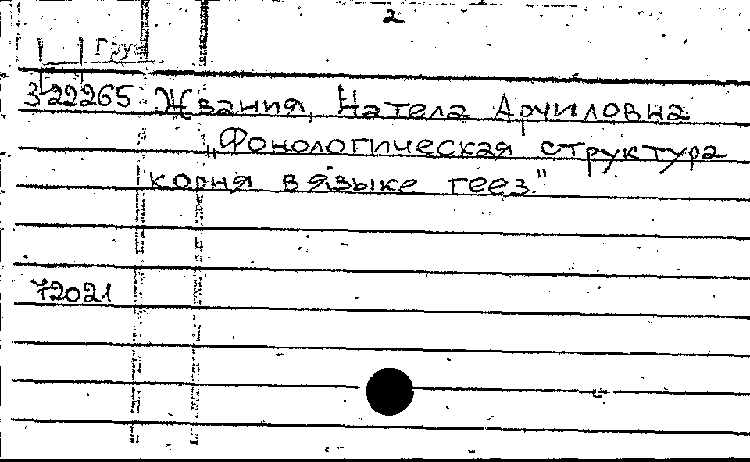 2
Гру
322265 Жвания, Натела Арчиловна
„Фонологическая структура
корня в языке геез"
72021